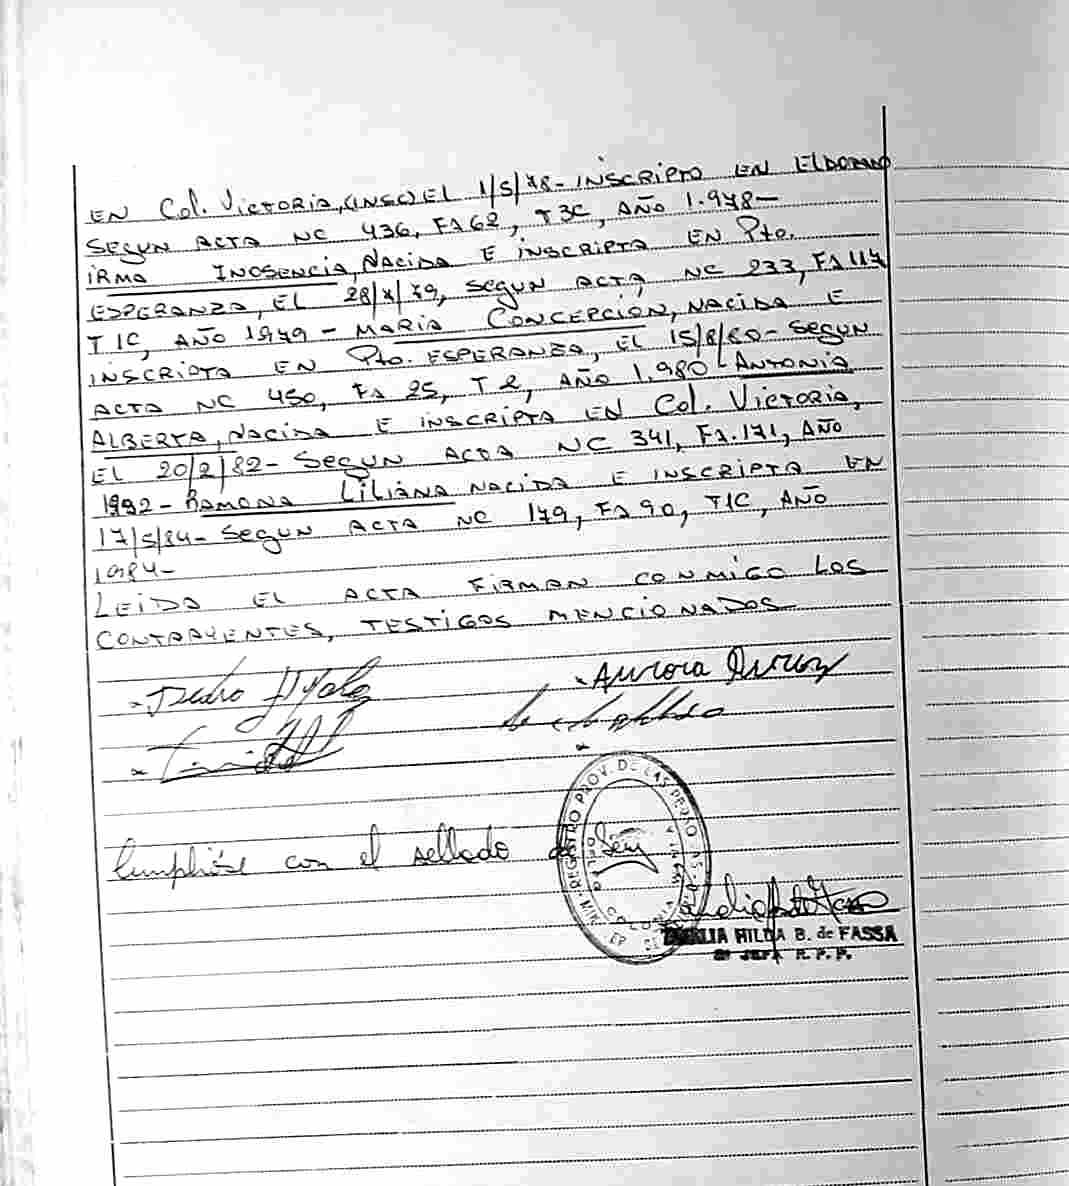 EN Col. Victoria, (INSC) EL 1/5/78- INSCRIPTO EN ELDORADO
SEGUN ACTA NC 436, Fª 62, T3C, AÑO 1.978-
IRMA INOSENCIA, NACIDA E INSCRIPTA EN Pto.
ESPERANZA, EL 28/X/79, SEGUN ACTA, NC 233, Fª 117
T1C, AÑO 1979 - MARIA CONCEPCION, NACIDA E
INSCRIPTA EN Pto. ESPERANZA, EL 15/8/80- SEGUN
ACTA NC 450, Fª 25, T 2, AÑO 1.980- ANTONIA
ALBERTA, NACIDA E INSCRIPTA EN Col. VICTORIA,
EL 20/2/82- SEGUN ACTA NC 341, Fª.171, AÑO
1992- RAMONA LILIANA NACIDA E INSCRIPTA EN
17/5/84- SEGUN ACTA NC 179, Fª 90, T1C, AÑO
1984-
LEIDA EL ACTA FIRMAN CONMIGO LOS
CONTRAYENTES, TESTIGOS MENCIONADOS
Pedro
Aurora
Cumplióse con el sellado de Ley
REGISTRO PROV. DE LAS PERSONAS
COLONIA
HILDA B. de FASSA
JEFA R.P.P.